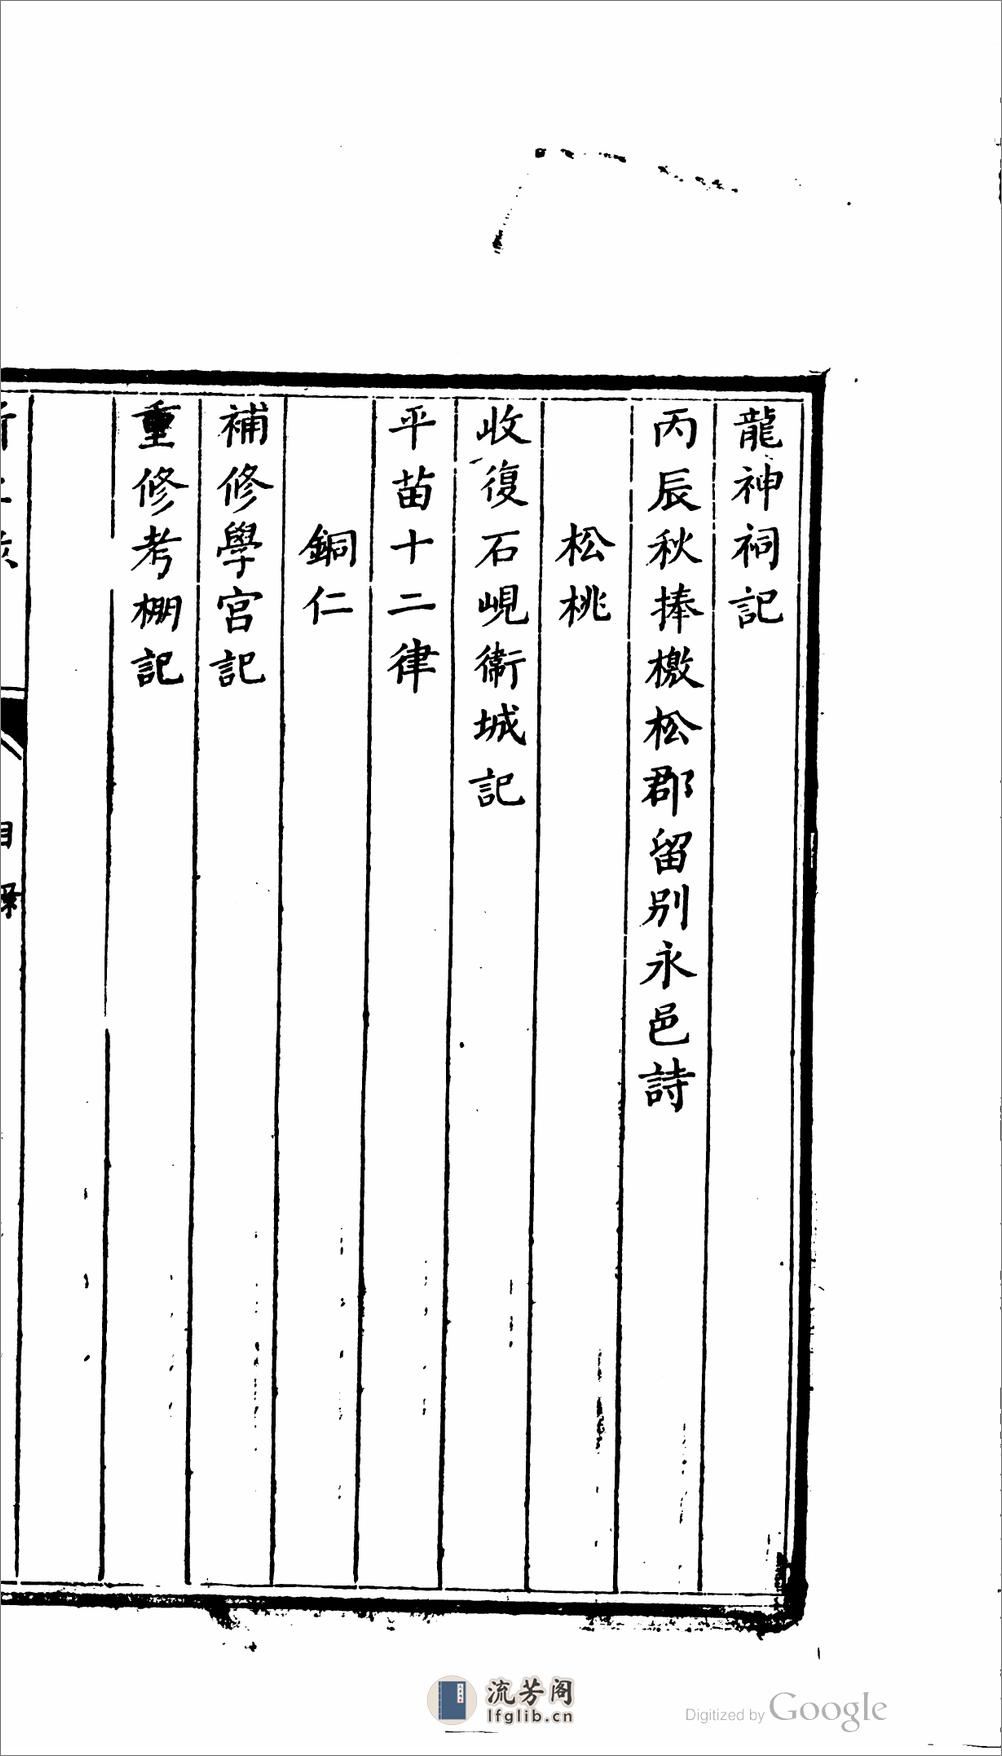 龍神祠記
丙辰秋捧檄松郡留別永邑詩
松桃
收復石峴衞城記
平苗十二律
銅仁
補修學宮記
重修考棚記
目錄
流芳阁
lfglib.cn
Digitized by Google